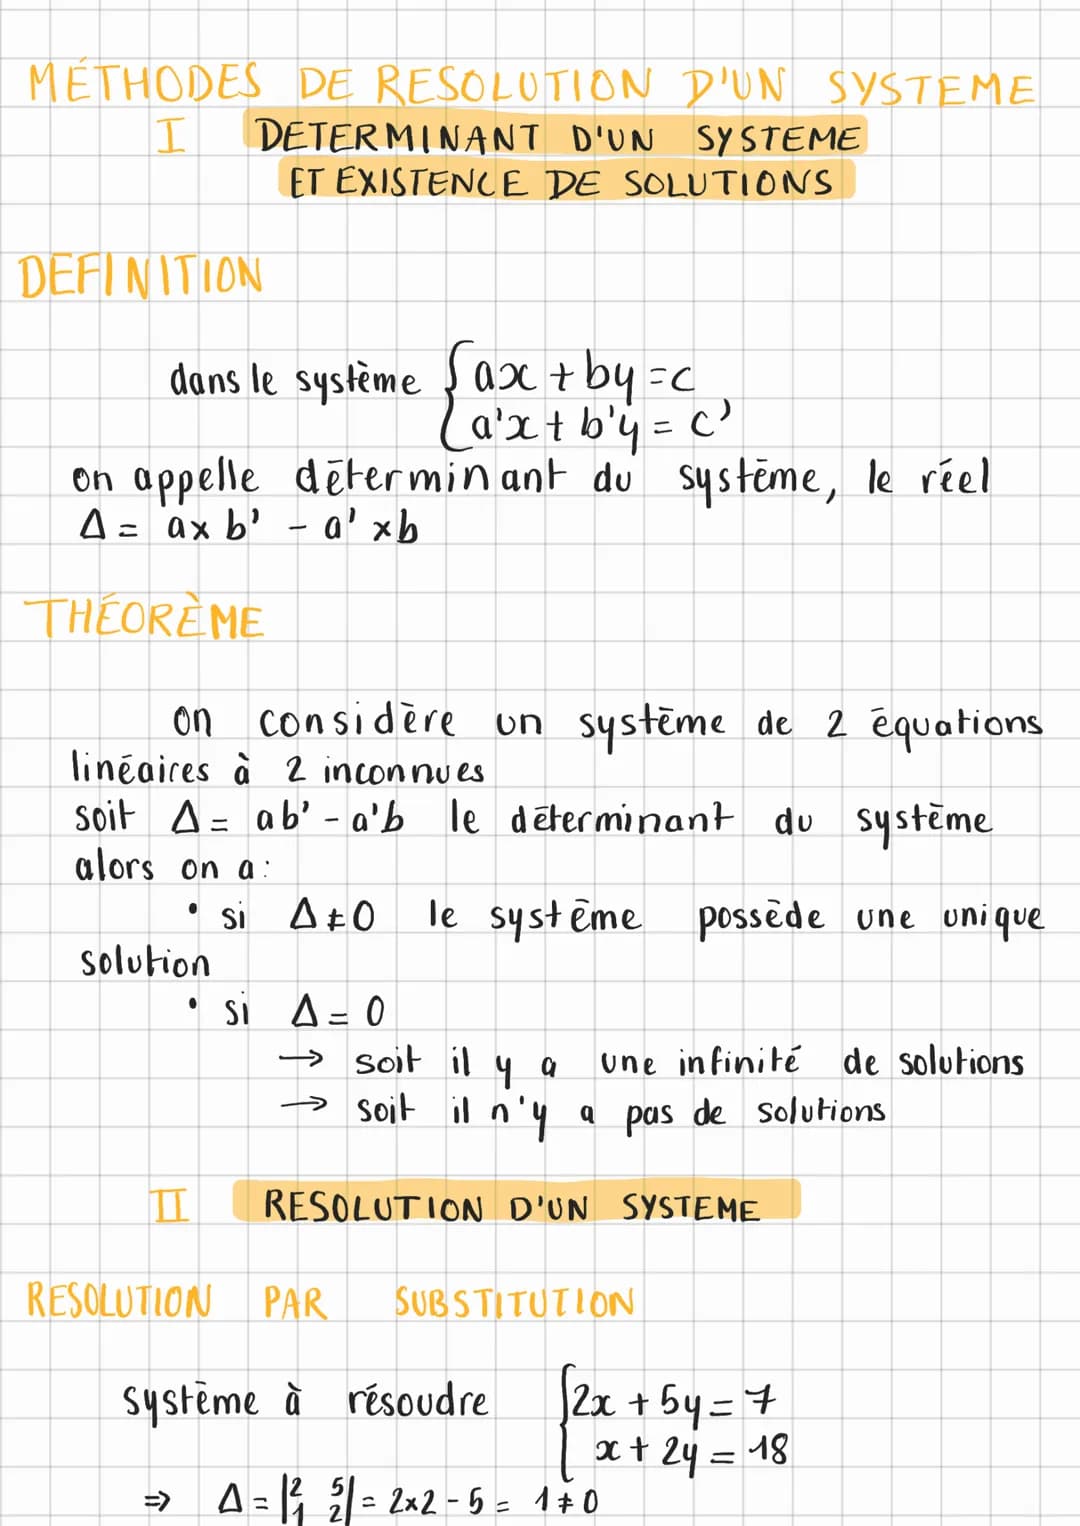 MÉTHODES DE RESOLUTION D'UN SYSTEME
I DETERMINANT D'UN SYSTEME
ET EXISTENCE DE SOLUTIONS
DEFINITION
dans le système { ax + by = c
a'x + b'y = c'
on appelle déterminant du système, le réel
Δ = a x b' - a' x b
THÉORÈME
on considère un système de 2 équations
linéaires à 2 inconnues
soit Δ = ab' - a'b le déterminant du système
alors on a :
• si Δ ≠ 0 le système possède une unique
solution
• si Δ = 0
→ soit il y a une infinité de solutions
→ soit il n'y a pas de solutions
II RESOLUTION D'UN SYSTEME
RESOLUTION PAR SUBSTITUTION
système à résoudre { 2x + 5y = 7
x + 2y = 18
⇒ Δ = |2 5
1 2| = 2x2 - 5 = 1 ≠ 0